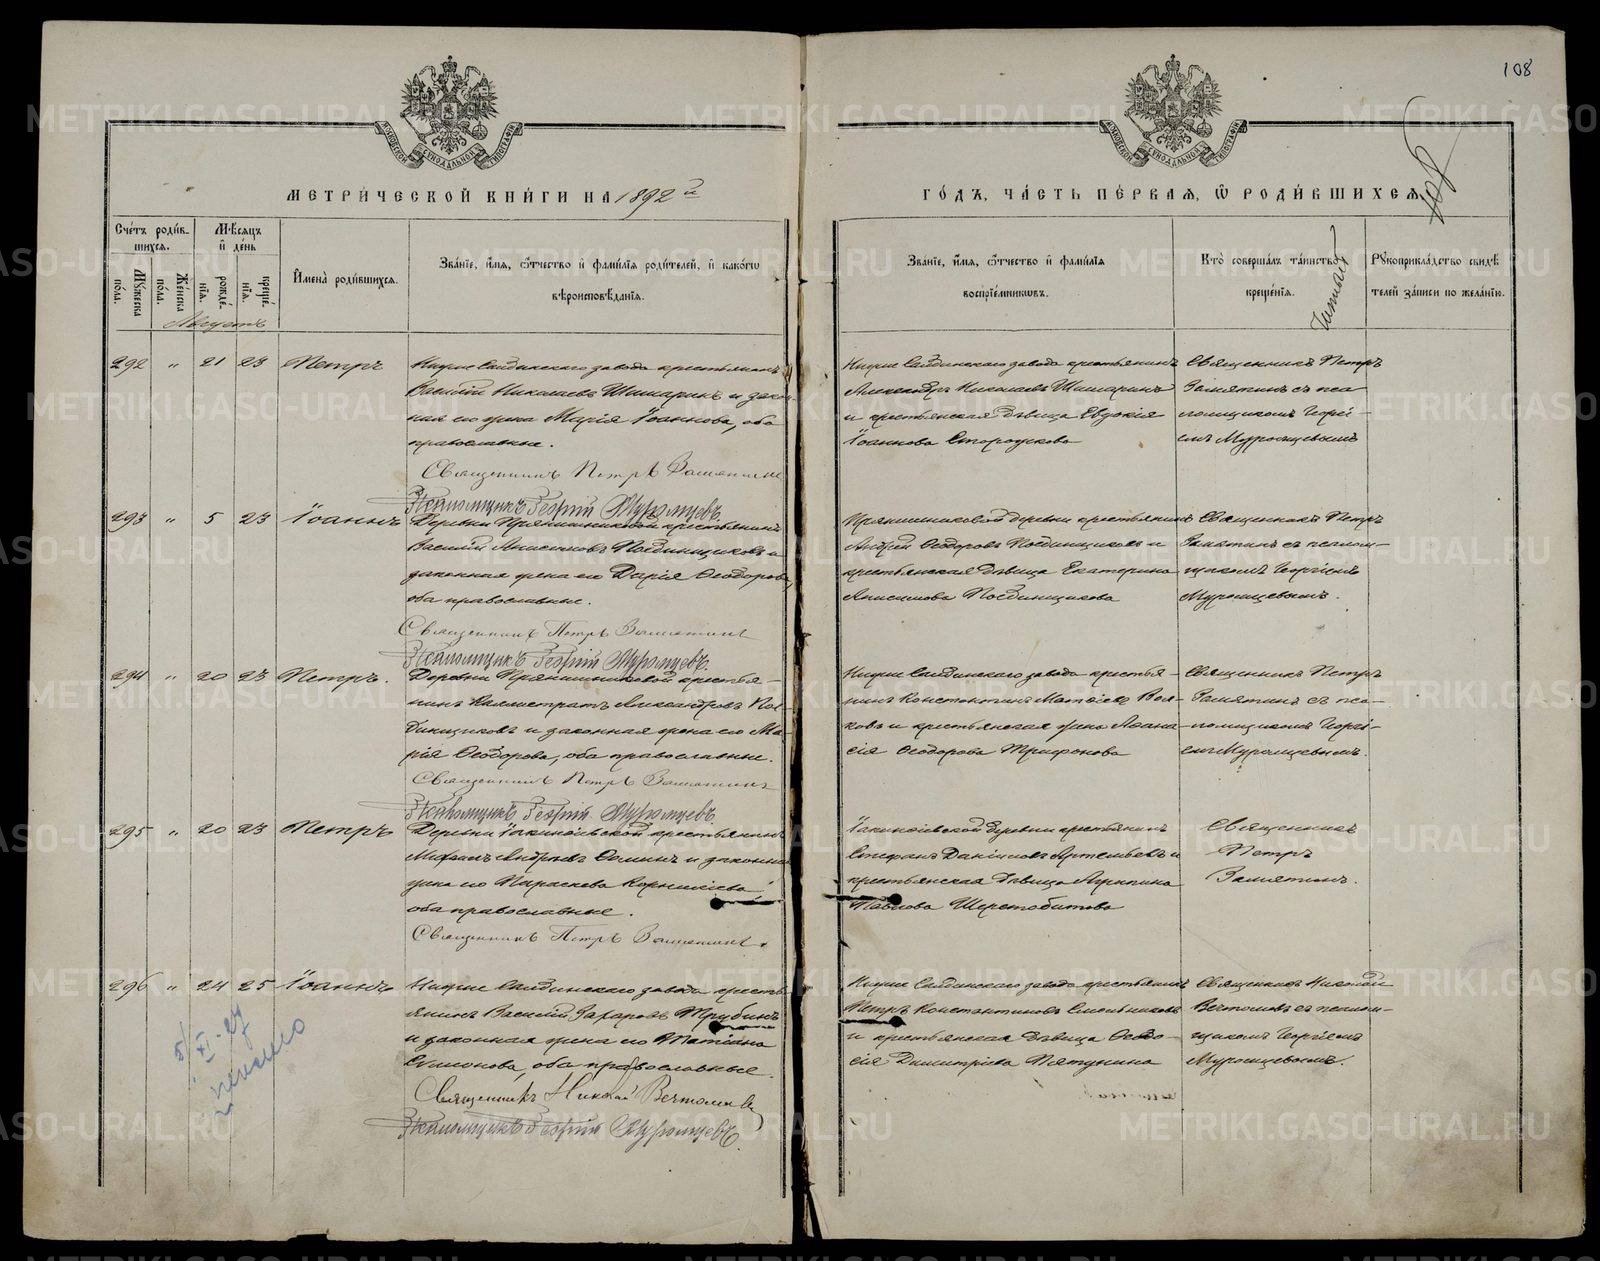 108
МЕТРИ́ЧЕСКОЙ КНИ́ГИ НА 1892 й
ГО́ДЪ, ЧА́СТЬ ПЕ́РВАЯ, Ѽ РОДИ́ВШИХСЯ
108
Сче́тъ роди́в-
шихся.
Мѣ́сяцъ
и҆ де́нь
Мꙋ́жеска
по́ла.
Же́нска
по́ла.
рожде́-
нїѧ.
креще́-
нїѧ.
И҆мена̀ роди́вшихся.
Зва́нїе, и҆́мѧ, ѻ҆́тчество и҆ фамѵ́лїѧ роди́телей, и҆ како́гѡ
вѣроисповѣ́данїѧ.
Зва́нїе, и҆́мѧ, ѻ҆́тчество и҆ фамѵ́лїѧ
воспрїе́мникѡвъ.
Кто̀ соверша́лъ та́инство
креще́нїѧ.
Рꙋкоприкла́дство свидѣ́-
телей за́писи по жела́нїю.
Августъ
292 " 21 23 Петръ
Нижне Салдинскаго завода крестьянинъ
Василій Николаевъ Шишаринъ и закон-
ная его жена Марія Іоаннова, оба
православные.
Священникъ Петръ Замятинъ
Псаломщикъ Георгій Муромцевъ.
Нижне Салдинскаго завода крестьянинъ
Александръ Николаевъ Шишаринъ
и крестьянская дѣвица Евдокія
Іоаннова Сторожкова
Священникъ Петръ
Замятинъ съ пса-
ломщикомъ Георгі-
емъ Муромцевымъ
293 " 5 23 Іоаннъ
Деревни Прянишниковой крестьянинъ
Василій Анисимовъ Поединщиковъ и
законная жена его Дарія Ѳеодорова,
оба православные.
Священникъ Петръ Замятинъ
Псаломщикъ Георгій Муромцевъ.
Прянишниковой деревни крестьянинъ
Андрей Ѳеодоровъ Поединщиковъ и
крестьянская дѣвица Екатерина
Анисимова Поединщикова
Священникъ Петръ
Замятинъ съ псалом-
щикомъ Георгіемъ
Муромцевымъ.
294 " 20 23 Петръ.
Деревни Прянишниковой крестья-
нинъ Каллистратъ Александровъ Пое-
динщиковъ и законная жена его Ма-
рія Ѳеодорова, оба православные.
Священникъ Петръ Замятинъ
Псаломщикъ Георгій Муромцевъ.
Нижне Салдинскаго завода крестья-
нинъ Константинъ Матвіевъ Вол-
ковъ и крестьянская жена Аѳана-
сія Ѳеодорова Трифонова
Священникъ Петръ
Замятинъ съ пса-
ломщикомъ Георгі-
емъ Муромцевымъ.
295 " 20 23 Петръ
Деревни Іакинѳіевской крестьянинъ
Андреевъ Ѳоминъ и законная
жена его Параскева Корниліева
оба православные.
Священникъ Петръ Замятинъ.
Іакинѳіевской деревни крестьянинъ
Стефанъ Даніиловъ Артемьевъ и
крестьянская дѣвица Агрипина
Павлова Шерстобитова
Священникъ
Петръ
Замятинъ.
296 " 24 25 Іоаннъ
Нижне Салдинскаго завода кресть-
янинъ Василій Захаровъ Трубинъ
и законная жена его Татіана
Симонова, оба православные.
Священникъ Николай Вечтомовъ
Псаломщикъ Георгій Муромцевъ.
Нижне Салдинскаго завода крестьянинъ
Петръ Константиновъ
и крестьянская дѣвица Ѳеодо-
сія Димитріева Пятунина
Священникъ Николай
Вечтомовъ съ псалом-
щикомъ Георгіемъ
Муромцевымъ.
5/XI-27
METRIKI.GASO-URAL.RU